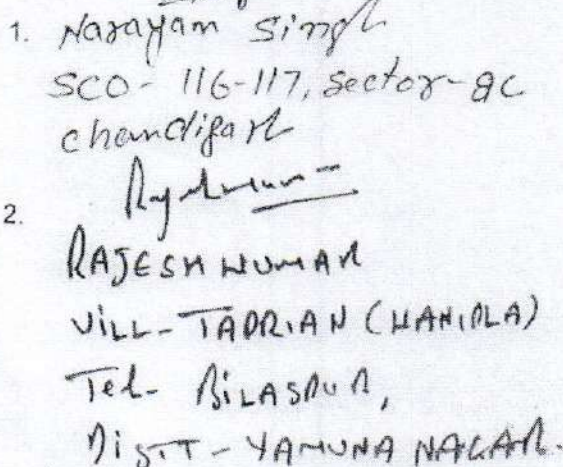 1. Narayan Singh
SCO- 116-117, Sector-8C
Chandigarh
2.
RAJESH KUMAR
VILL- TADRIAN (
Teh- BILASPUR,
DISTT - YAMUNA NAGAR.